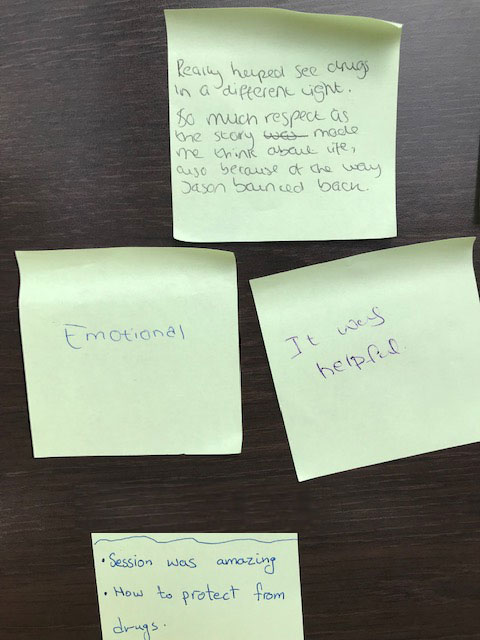 Really helped see drugs
in a different light.
So much respect as
the story was made
me think about life,
also because of the way
Jason bounced back.
Emotional
It was
helpful.
• Session was amazing
• How to protect from
drugs.